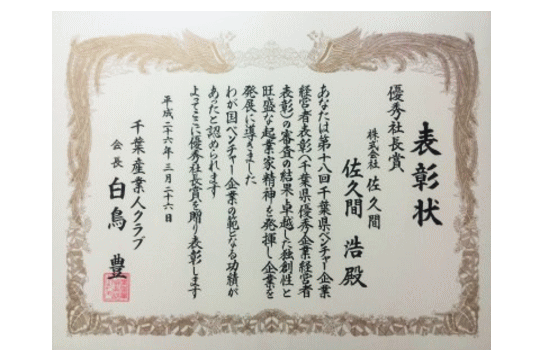 表彰状
優秀社長賞
株式会社 佐久間
佐久間 浩 殿
あなたは第十八回千葉県ベンチャー企業
経営者表彰(千葉県優秀企業経営者
表彰)の審査の結果卓越した独創性と
旺盛な起業家精神を発揮し企業を
発展に導きました
わが国ベンチャー企業の範となる功績が
あったと認められます
よってここに優秀社長賞を贈り表彰します
平成二十六年三月二十六日
千葉産業人クラブ
会長 白鳥 豊